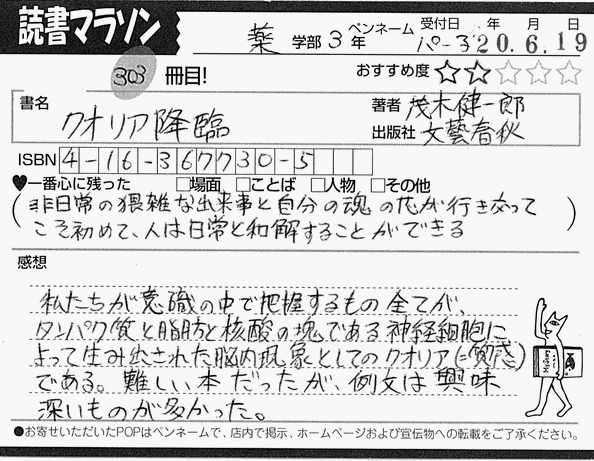 読書マラソン
薬 学部 3 年 ペンネーム パーヌ 受付日 年 月 日 20.6.19
303 冊目! おすすめ度 ☆☆☆☆☆
書名 クオリア降臨
著者 茂木健一郎
出版社 文藝春秋
ISBN 4-16-367730-5
♥一番心に残った □場面 □ことば □人物 □その他
(非日常の猥雑な出来事と自分の魂の芯が行き交って
こそ初めて、人は日常と和解することができる)
感想
私たちが意識の中で把握するもの全てが、
タンパク質と脂肪と核酸の塊である神経細胞に
よって生み出された脳内現象としてのクオリア(=質感)
である。難しい本だったが、例文は興味
深いものが多かった。
●お寄せいただいたPOPはペンネームで、店内で掲示、ホームページおよび宣伝物への転載をご了承ください。